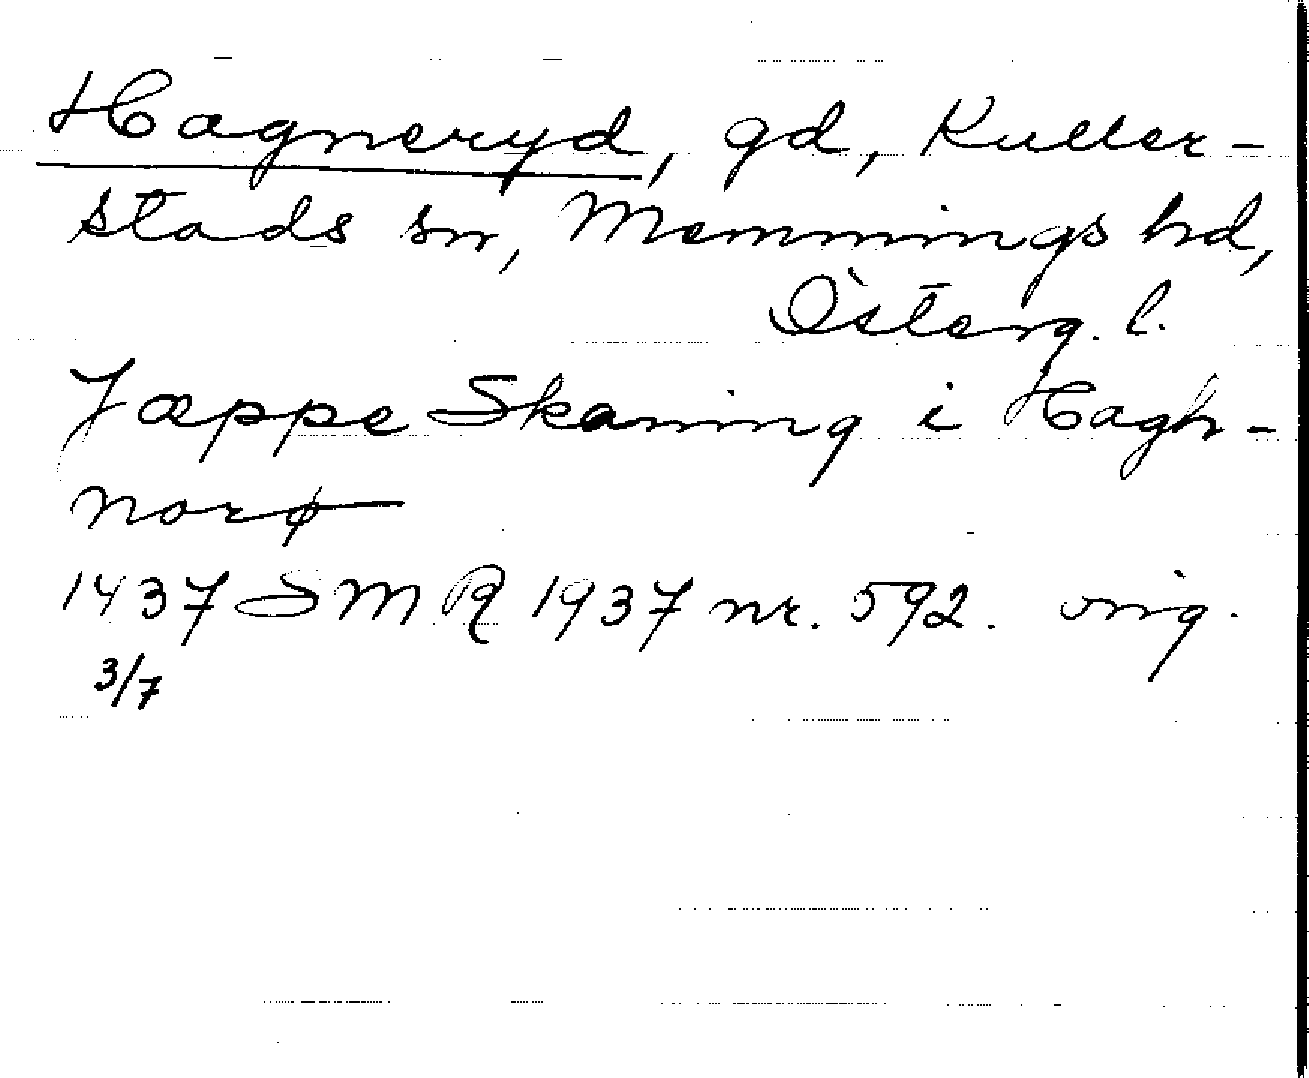 Hagneryd, gd, Kuller-
stads sn, Memmings hd,
Österg. l.
Jæppe Skaning i Hagh-
norø
1437 3/7 SMR 1937 nr. 592. orig.